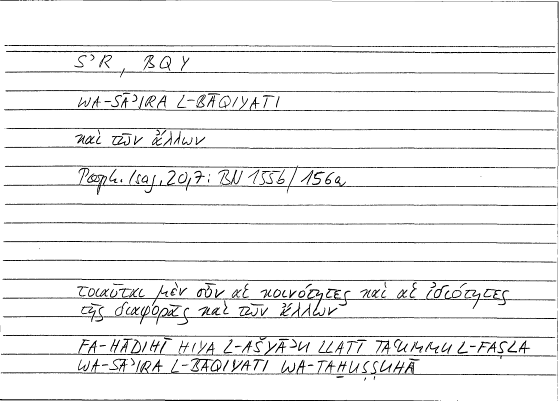 SʾR, BQY
WA-SĀʾIRA L-BĀQIYATI
καὶ τῶν ἄλλων
Porph. Isag. 20,7: BN 155b/156a
τοιαῦται μὲν οὖν αἱ κοινότητες καὶ αἱ ἰδιότητες
τῆς διαφορᾶς καὶ τῶν ἄλλων
FA-HĀḎIHĪ HIYA L-AŠYĀʾU LLATĪ TAʿUMMU L-FAṢLA
WA-SĀʾIRA L-BĀQIYATI WA-TAḪUṢṢUHĀ